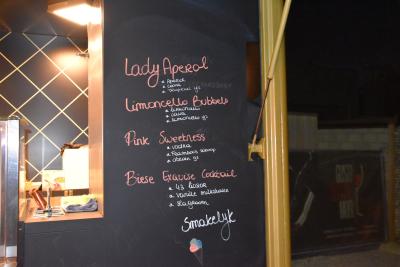 Lady Aperol
* Aperol
* Cava
* Tropical ijs
Limoncello Bubbels
* limoncello
* cava
* limoncello ijs
Pink Sweetness
* vodka
* Framboos siroop
* citroen ijs
Brese Exquise Cocktail
* 43 likeur
* Vanille milkshake
* Slagroom
Smakelijk